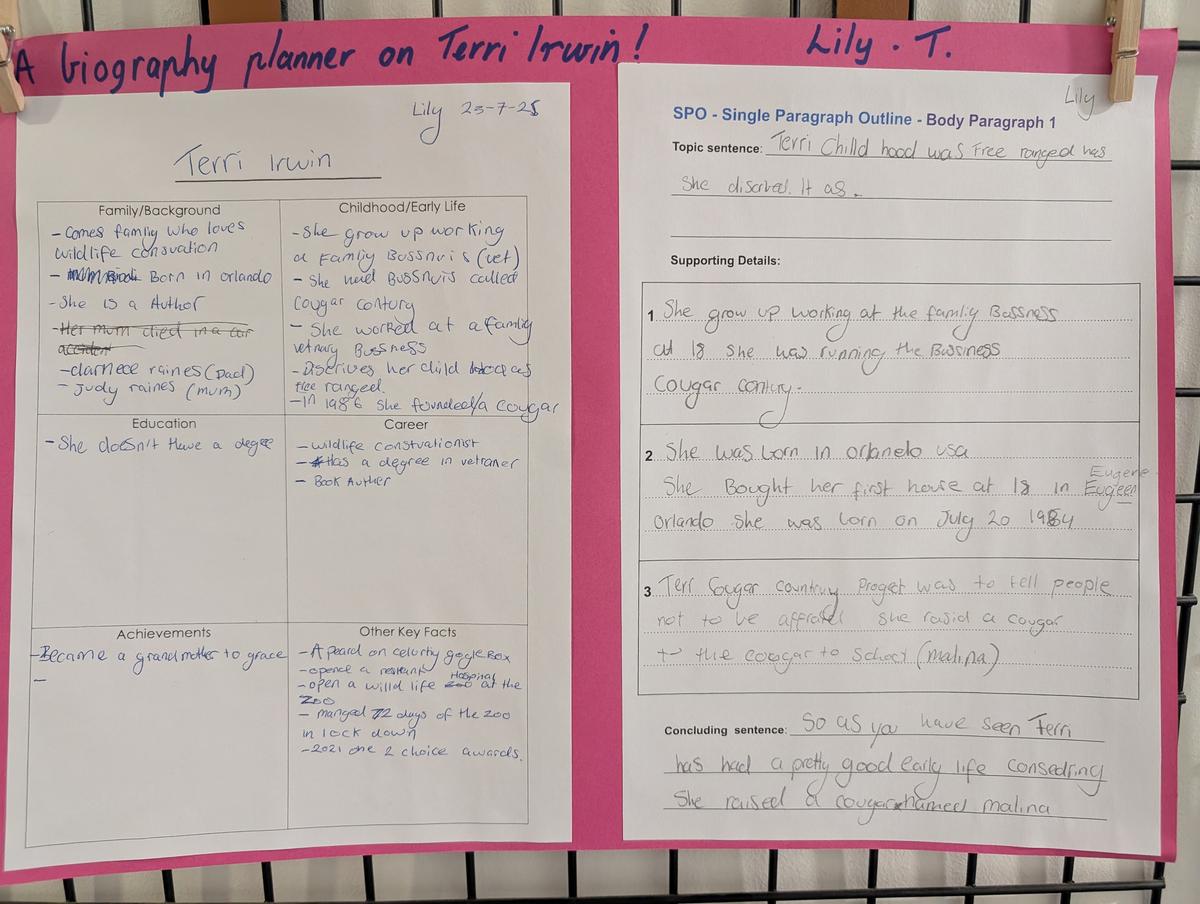 A biography planner on Terri Irwin!
Lily . T.
Lily 23-7-25
Terri Irwin
Family/Background
- Comes family who loves
wildlife consuation
- Born in orlando
- She is a Author
- Her mum died in a car
accident
- clarnece raines (Dad)
- Judy raines (mum)
Childhood/Early Life
- She grow up working
a Famliy Bussnuis (vet)
- She BUSSNUIS called
Cougar contury
- She worked at a famliy
vetnary Bussness
- Discrives her child as
free ranged.
- In 1986 she founded/a cougar
Education
- She doesn't Have a degee
Career
- wildlife constuationist
- Has a degree in vetraner
- Book Auther
Achievements
- Became a grandmother to grace
-
Other Key Facts
- A peard on celurty gogleBox
- opence a
- open a willd life zoo Hospinal at the
Zoo
- manged 72 days of the zoo
in lock down
- 2021 one 2 choice awards.
Lily
SPO - Single Paragraph Outline - Body Paragraph 1
Topic sentence: Terri Chilld hood was Free ranged has
She discribed. It as.
Supporting Details:
1 She grow up working at the famliy Bussness
at 18 she was running the Bussiness
Cougar contury.
2 She was born in orlando usa
She Bought her first house at 18 in Eugeen Eugene
orlando she was born on July 20 1964
3 Teri Cougar country Progect was to tell people
not to be affraid she rasid a cougar
the cougar to School (malina)
Concluding sentence: So as you have seen Terri
has had a pretty good early life consedring
She raised a cougar named malina